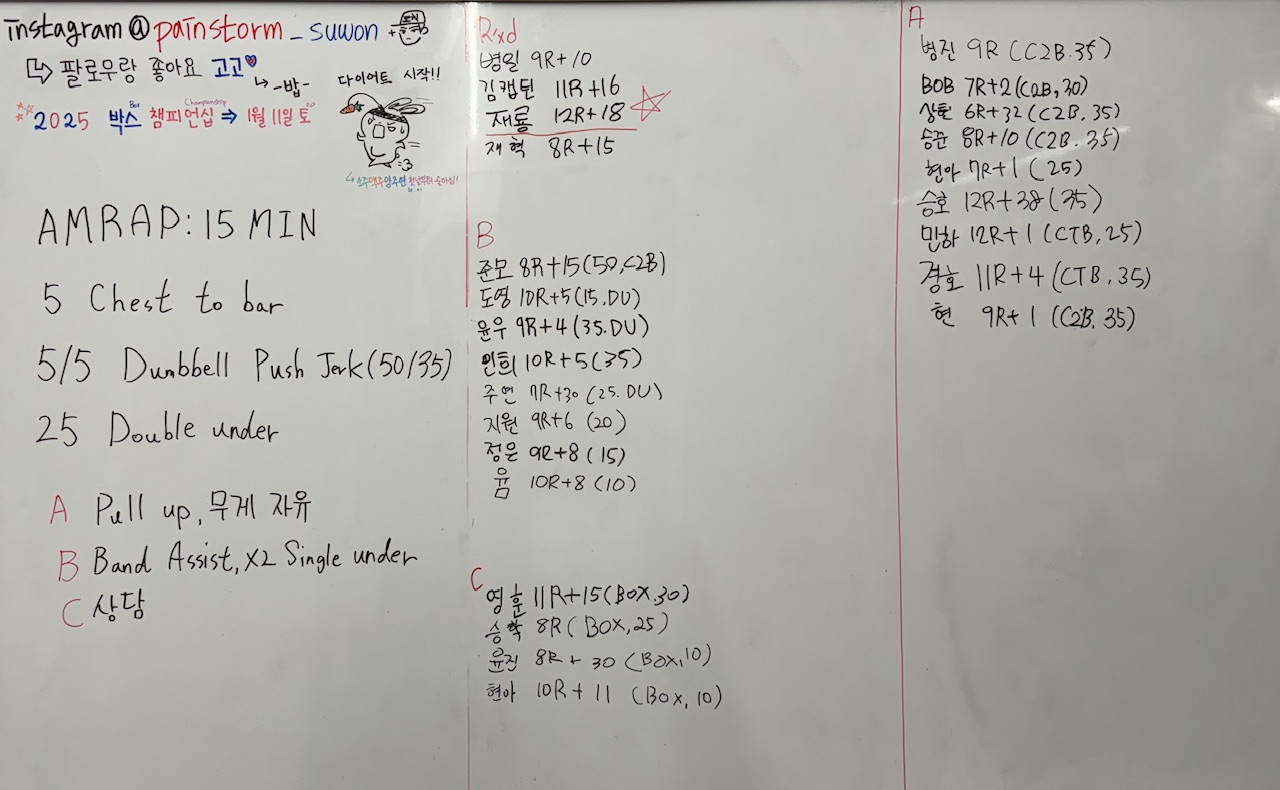 instagram@painstorm_suwon
팔로우랑 좋아요 고고
-밥-
다이어트 시작!!
Box Championship
2025 박스 챔피언십 ⇒ 1월 11일 토
소주맥주양주면
AMRAP: 15 MIN
5 Chest to bar
5/5 Dumbbell Push Jerk (50/35)
25 Double under
A Pull up, 무게 자유
B Band Assist, X2 Single under
C 상담
Rxd
병일 9R+10
김캡틴 11R+16
재룡 12R+18
재혁 8R+15
B
준모 8R+15 (50, C2B)
도영 10R+5 (15. DU)
윤우 9R+4 (35. DU)
인희 10R+5 (35)
주연 7R+30 (25. DU)
지원 9R+6 (20)
정은 9R+8 (15)
윰 10R+8 (10)
C
영훈 11R+15 (BOX.30)
승학 8R (BOX, 25)
윤진 8R + 30 (BOX, 10)
현아 10R + 11 (BOX, 10)
A
병진 9R (C2B. 35)
BOB 7R+2 (C2B, 30)
6R+32 (C2B. 35)
승준 8R+10 (C2B. 35)
현아 7R+1 (25)
승호 12R+38 (35)
민하 12R+1 (CTB, 25)
경호 11R+4 (CTB, 35)
현 9R+1 (C2B. 35)